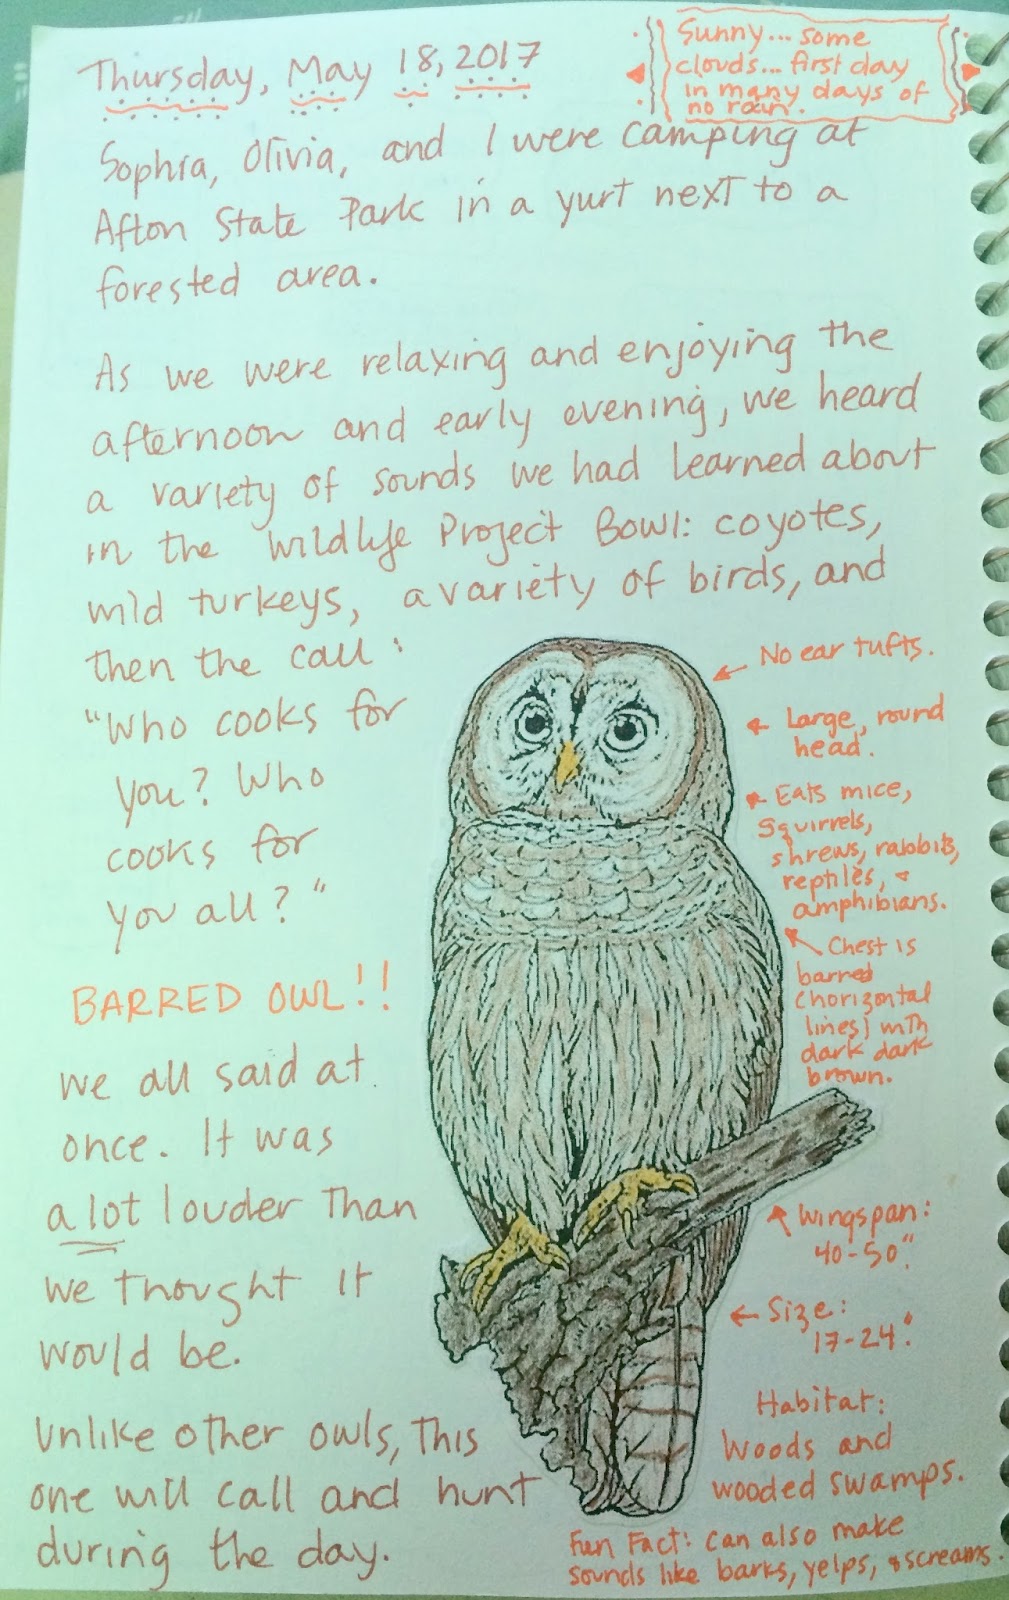 Thursday, May 18, 2017
Sunny... some
clouds... first day
in many days of
no rain.
Sophia, Olivia, and I were camping at
Afton State Park in a yurt next to a
forested area.
As we were relaxing and enjoying the
afternoon and early evening, we heard
a variety of sounds we had learned about
in the Wildlife Project Bowl: coyotes,
wild turkeys, a variety of birds, and
then the call:
"Who cooks for
you? Who
cooks for
you all?"
BARRED OWL!!
we all said at
once. It was
a lot louder than
we thought it
would be.
Unlike other owls, this
one will call and hunt
during the day.
No ear tufts.
Large, round
head.
Eats mice,
squirrels,
shrews, rabbits,
reptiles, +
amphibians.
Chest is
barred
(horizontal
lines) with
dark dark
brown.
Wingspan:
40-50".
Size:
17-24".
Habitat:
Woods and
wooded swamps.
Fun Fact: Can also make
sounds like barks, yelps, & screams.